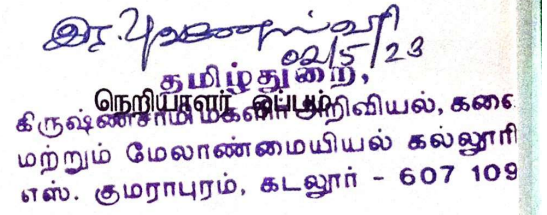 இர. புவனேஸ்வரி
02/5/23
தமிழ்துறை,
நெறியாளர் ஒப்பம்
கிருஷ்ணசாமி மகளிர் அறிவியல், கலை
மற்றும் மேலாண்மையியல் கல்லூரி
எஸ். குமராபுரம், கடலூர் - 607 109